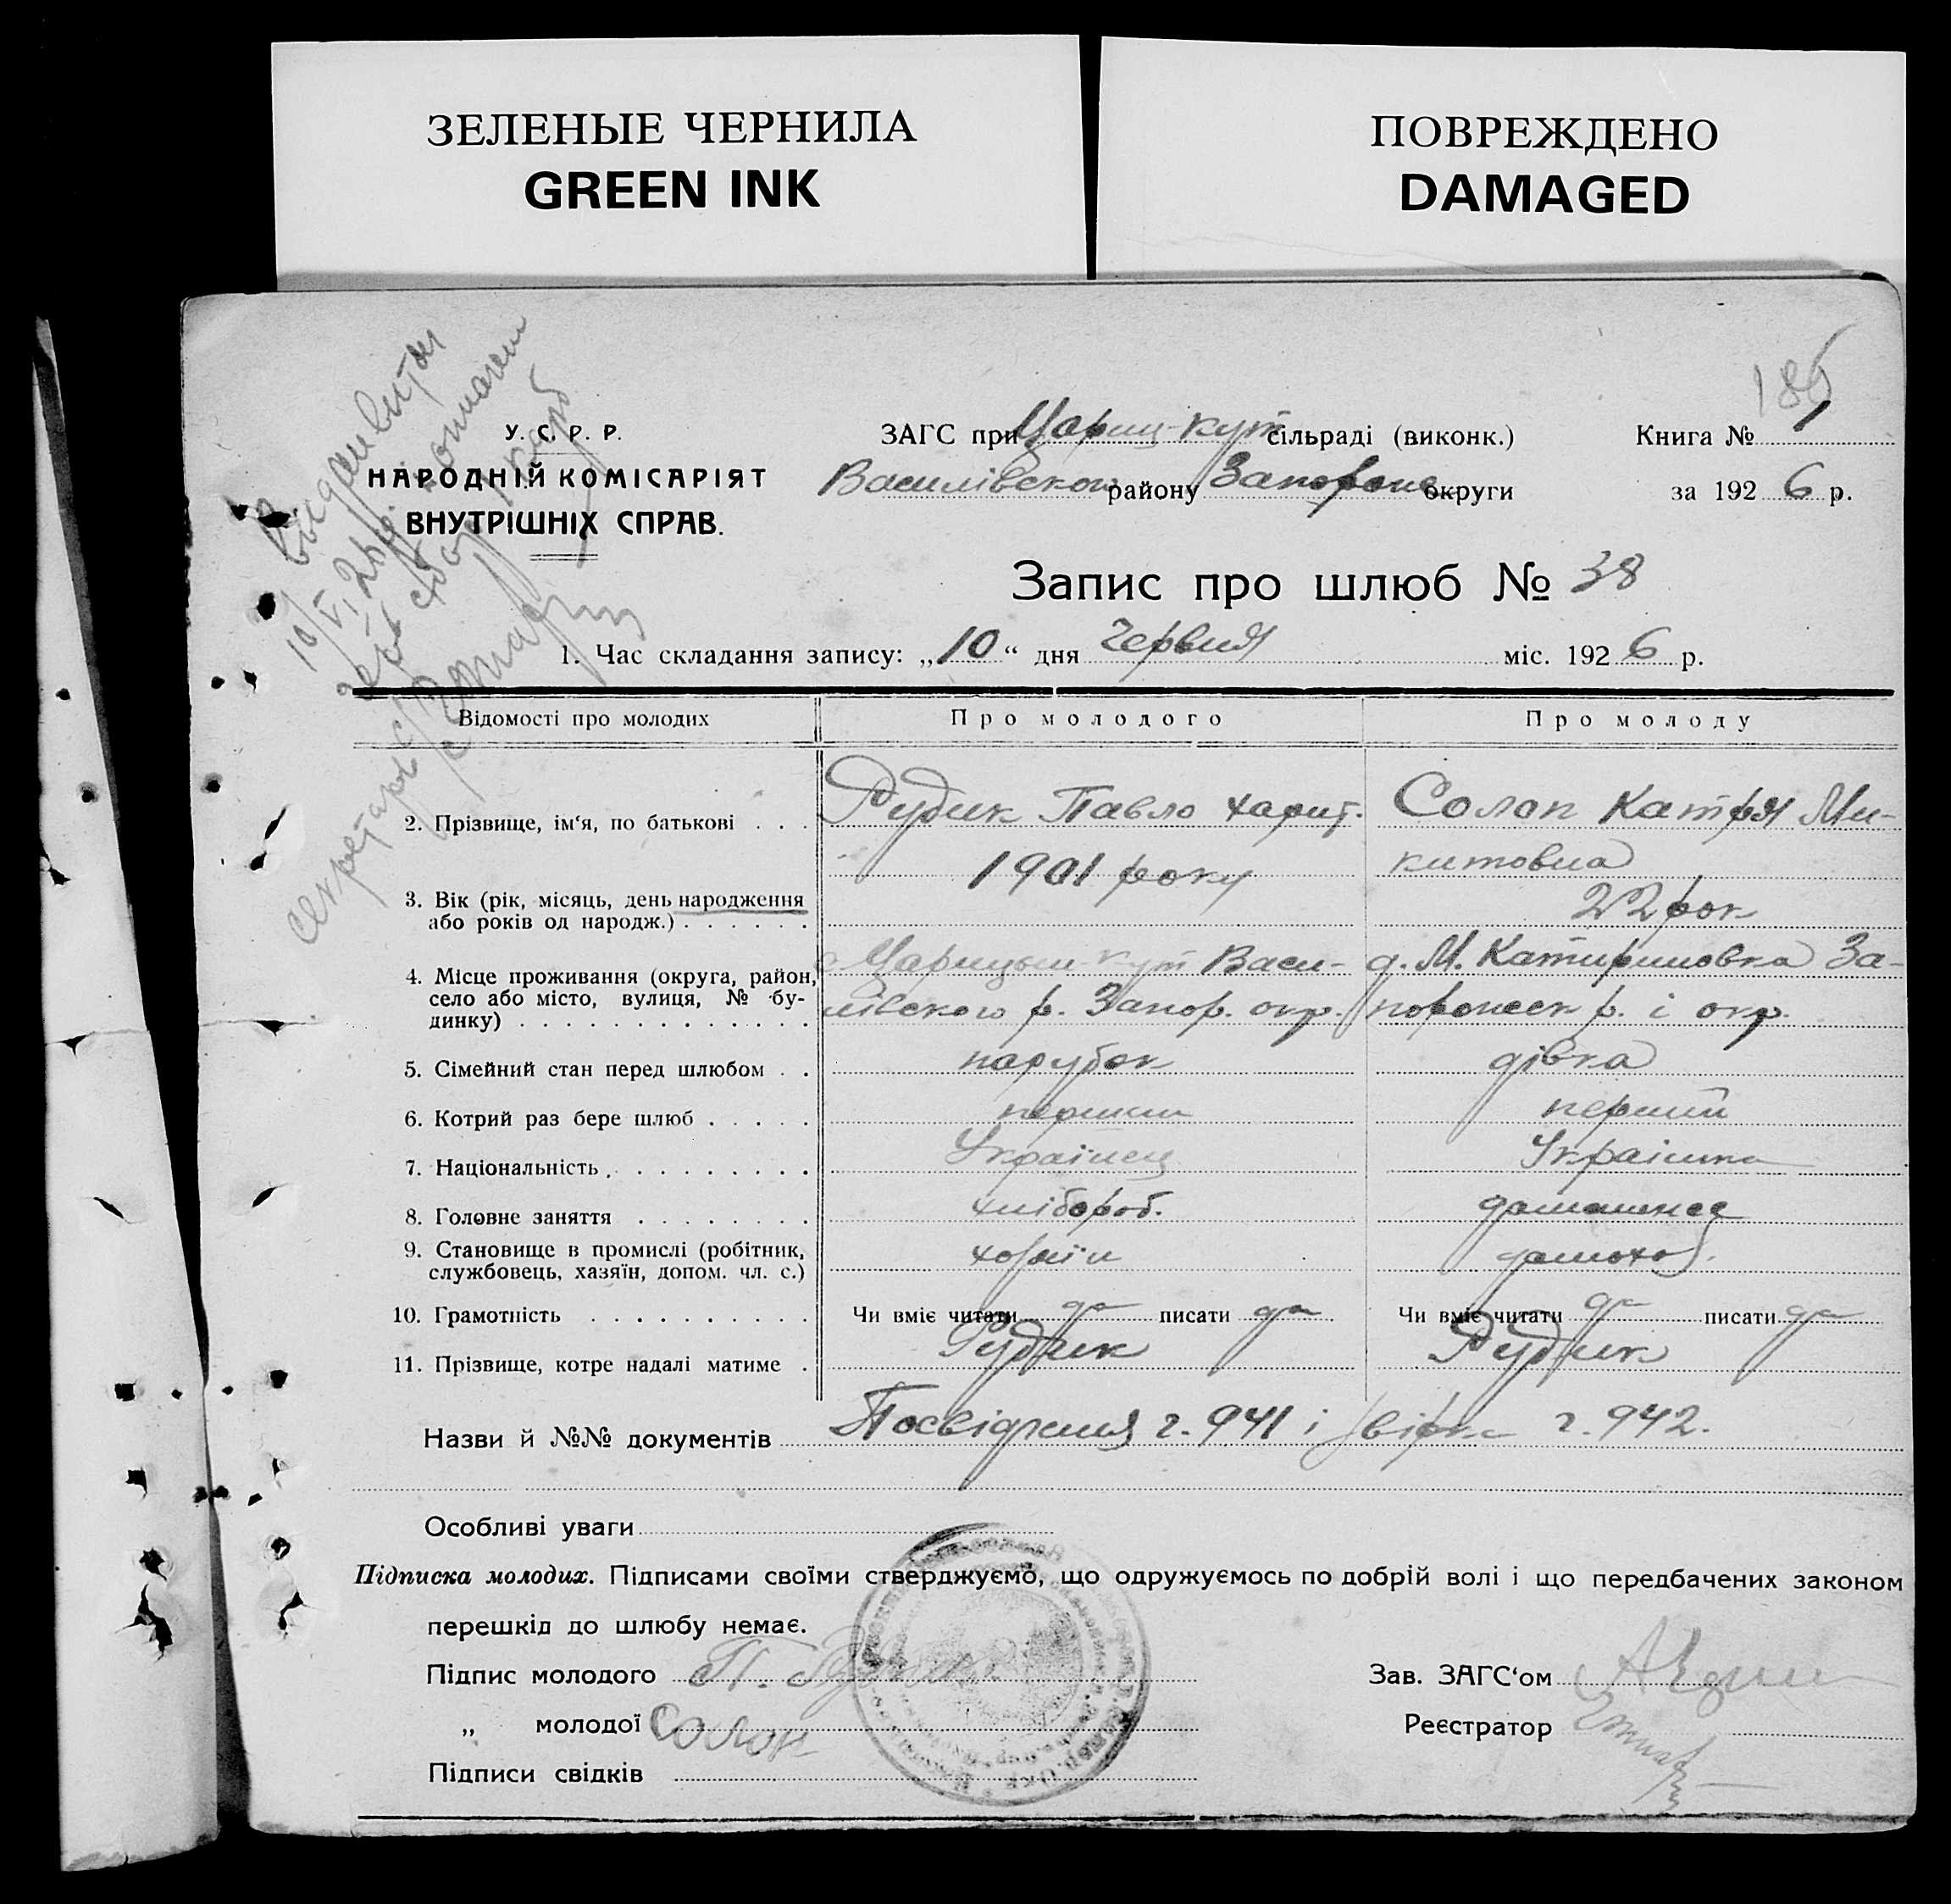 ЗЕЛЕНЫЕ ЧЕРНИЛА
GREEN INK
ПОВРЕЖДЕНО
DAMAGED
186
У. С. Р. Р.
НАРОДНІЙ КОМІСАРІЯТ
ВНУТРІШНІХ СПРАВ.
ЗАГС при Цариц-Кут сільраді (виконк.)
Книга № 1
Василівского району Запорожс округи
за 1926 р.
Запис про шлюб № 38
1. Час складання запису: „10“ дня Червня міс. 1926 р.
Відомості про молодих
Про молодого
Про молоду
2. Прізвище, ім‘я, по батькові . . .
Рудик Павло Харит.
Солоп Катря Ми-
китовна
3. Вік (рік, місяць, день народження
або років од народж.) . . . . . .
1901 року
22 рок
4. Місце проживання (округа, район,
село або місто, вулиця, № бу-
динку) . . . . . . . . . . . . .
с Царицын-Кут Васи-
лівского р. Запор. окр.
д. М. Катириновка За-
порожск р. і окр.
5. Сімейний стан перед шлюбом . .
парубок
дівка
6. Котрий раз бере шлюб . . . . .
перший
перший
7. Національність . . . . . . . . .
Українец
Українка
8. Головне заняття . . . . . . . .
хлібороб.
9. Становище в промислі (робітник,
службовець, хазяїн, допом. чл. с.)
10. Грамотність . . . . . . . . . .
Чи вміє читати да писати да
Чи вміє читати да писати да
11. Прізвище, котре надалі матиме .
Рудик
Рудик
Назви й №№ документів Посвідчення г. 941 і г. 942.
Особливі уваги
Підписка молодих. Підписами своїми стверджуємо, що одружуємось по добрій волі і що передбачених законом
перешкід до шлюбу немає.
Підпис молодого П. Рудик
Зав. ЗАГС‘ом
„ молодої Солоп
Реєстратор
Підписи свідків